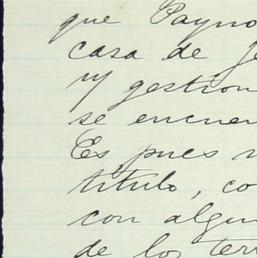 que Payno
casa de je
y gestion
se encuen
Es pues n
título, co
con algun
de los terr